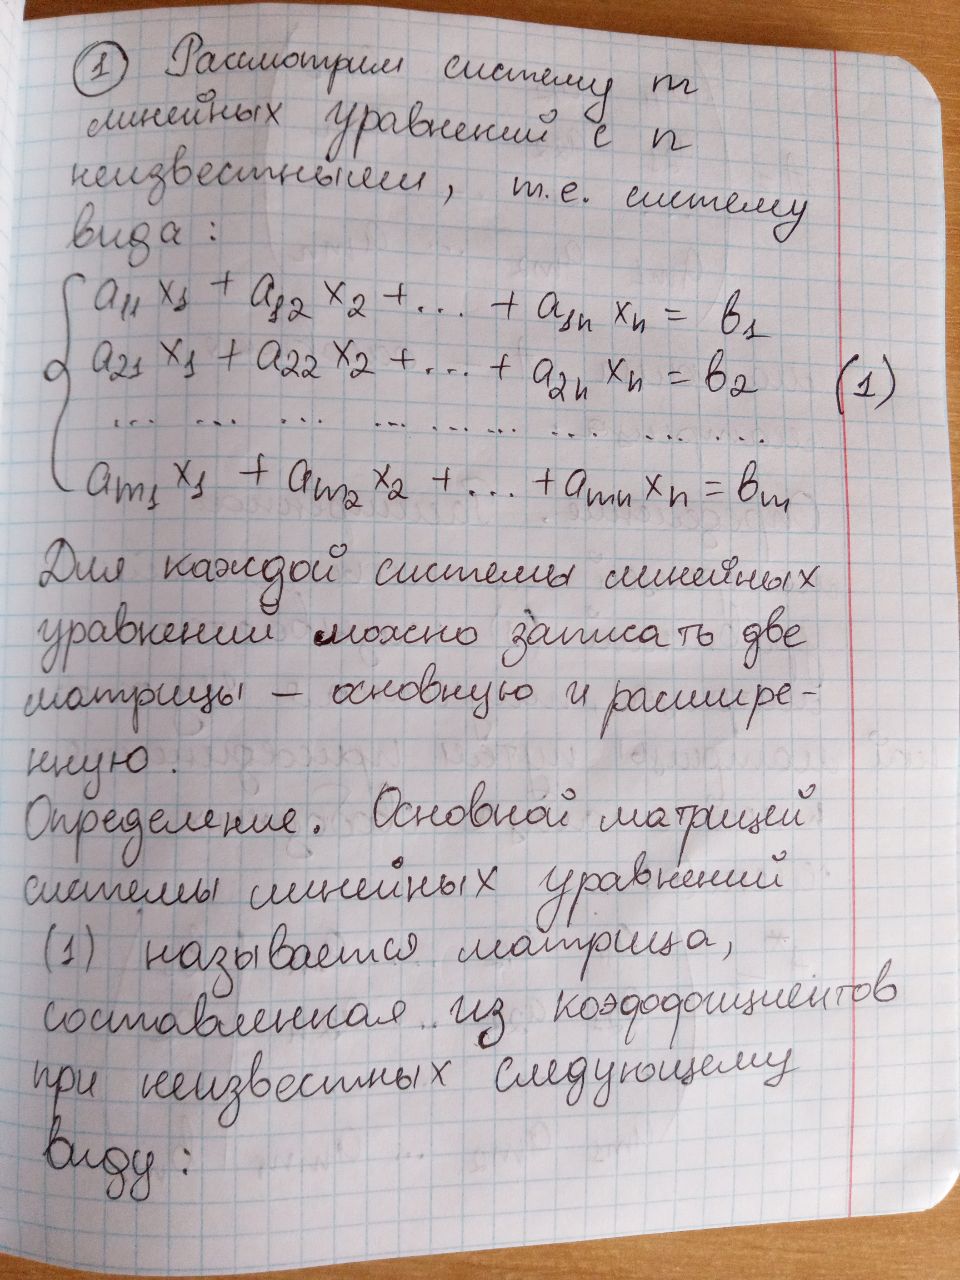 ① Рассмотрим систему m
линейных уравнений с n
неизвестными, т.е. систему
вида:
a₁₁ x₁ + a₁₂ x₂ + ... + a₁ₙ xₙ = b₁
a₂₁ x₁ + a₂₂ x₂ + ... + a₂ₙ xₙ = b₂ (1)
... ... ... ... ... ... ... ... ...
aₘ₁ x₁ + aₘ₂ x₂ + ... + aₘₙ xₙ = bₘ
Для каждой системы линейных
уравнений можно записать две
матрицы – основную и расшире-
нную.
Определение. Основной матрицей
системы линейных уравнений
(1) называется матрица,
составленная из коэффициентов
при неизвестных следующему
виду: